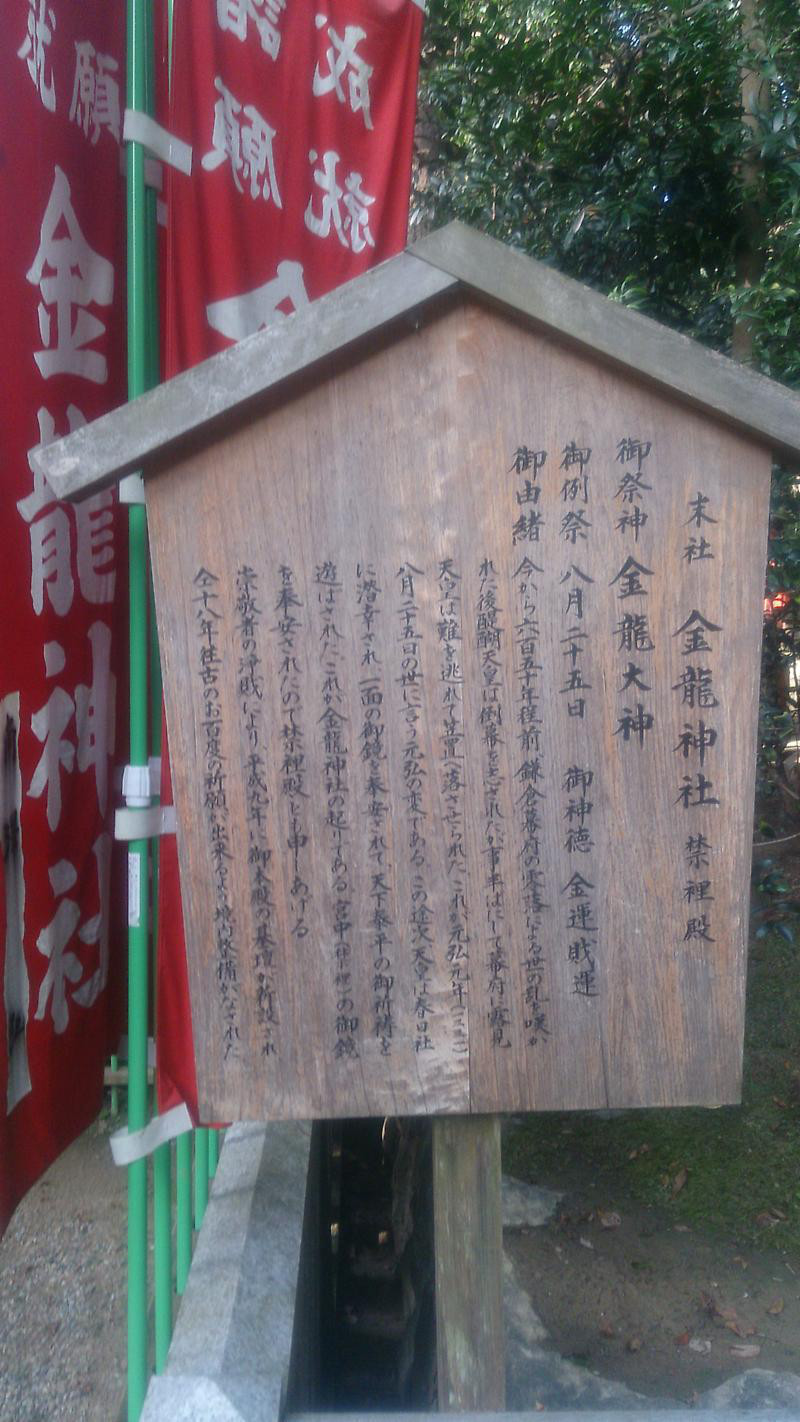 末社 金龍神社 禁裡殿
御祭神 金龍大神
御例祭 八月二十五日 御神徳 金運財運
御由緒 今から六百五十年程前 鎌倉幕府の零落による世の乱を嘆か
れた後醍醐天皇は倒幕を志されたが事半ばにして幕府に露見
天皇は難を逃れて笠置へ落させられた、これが元弘元年(一三三一)
八月二十五日の世に言う元弘の変である、この途次天皇は春日社
に潜幸され、一面の御鏡を奉安されて、天下泰平の御祈祷を
遊ばされた、これが金龍神社の起りである、宮中(禁裡)の御鏡
を奉安されたので禁裡殿とも申しあげる
崇敬者の浄財により、平成九年に御本殿の基壇が新設され
仝十八年往古のお百度の祈願が出来るよう境内整備がなされた
成就
諸願
金龍神社
願
就